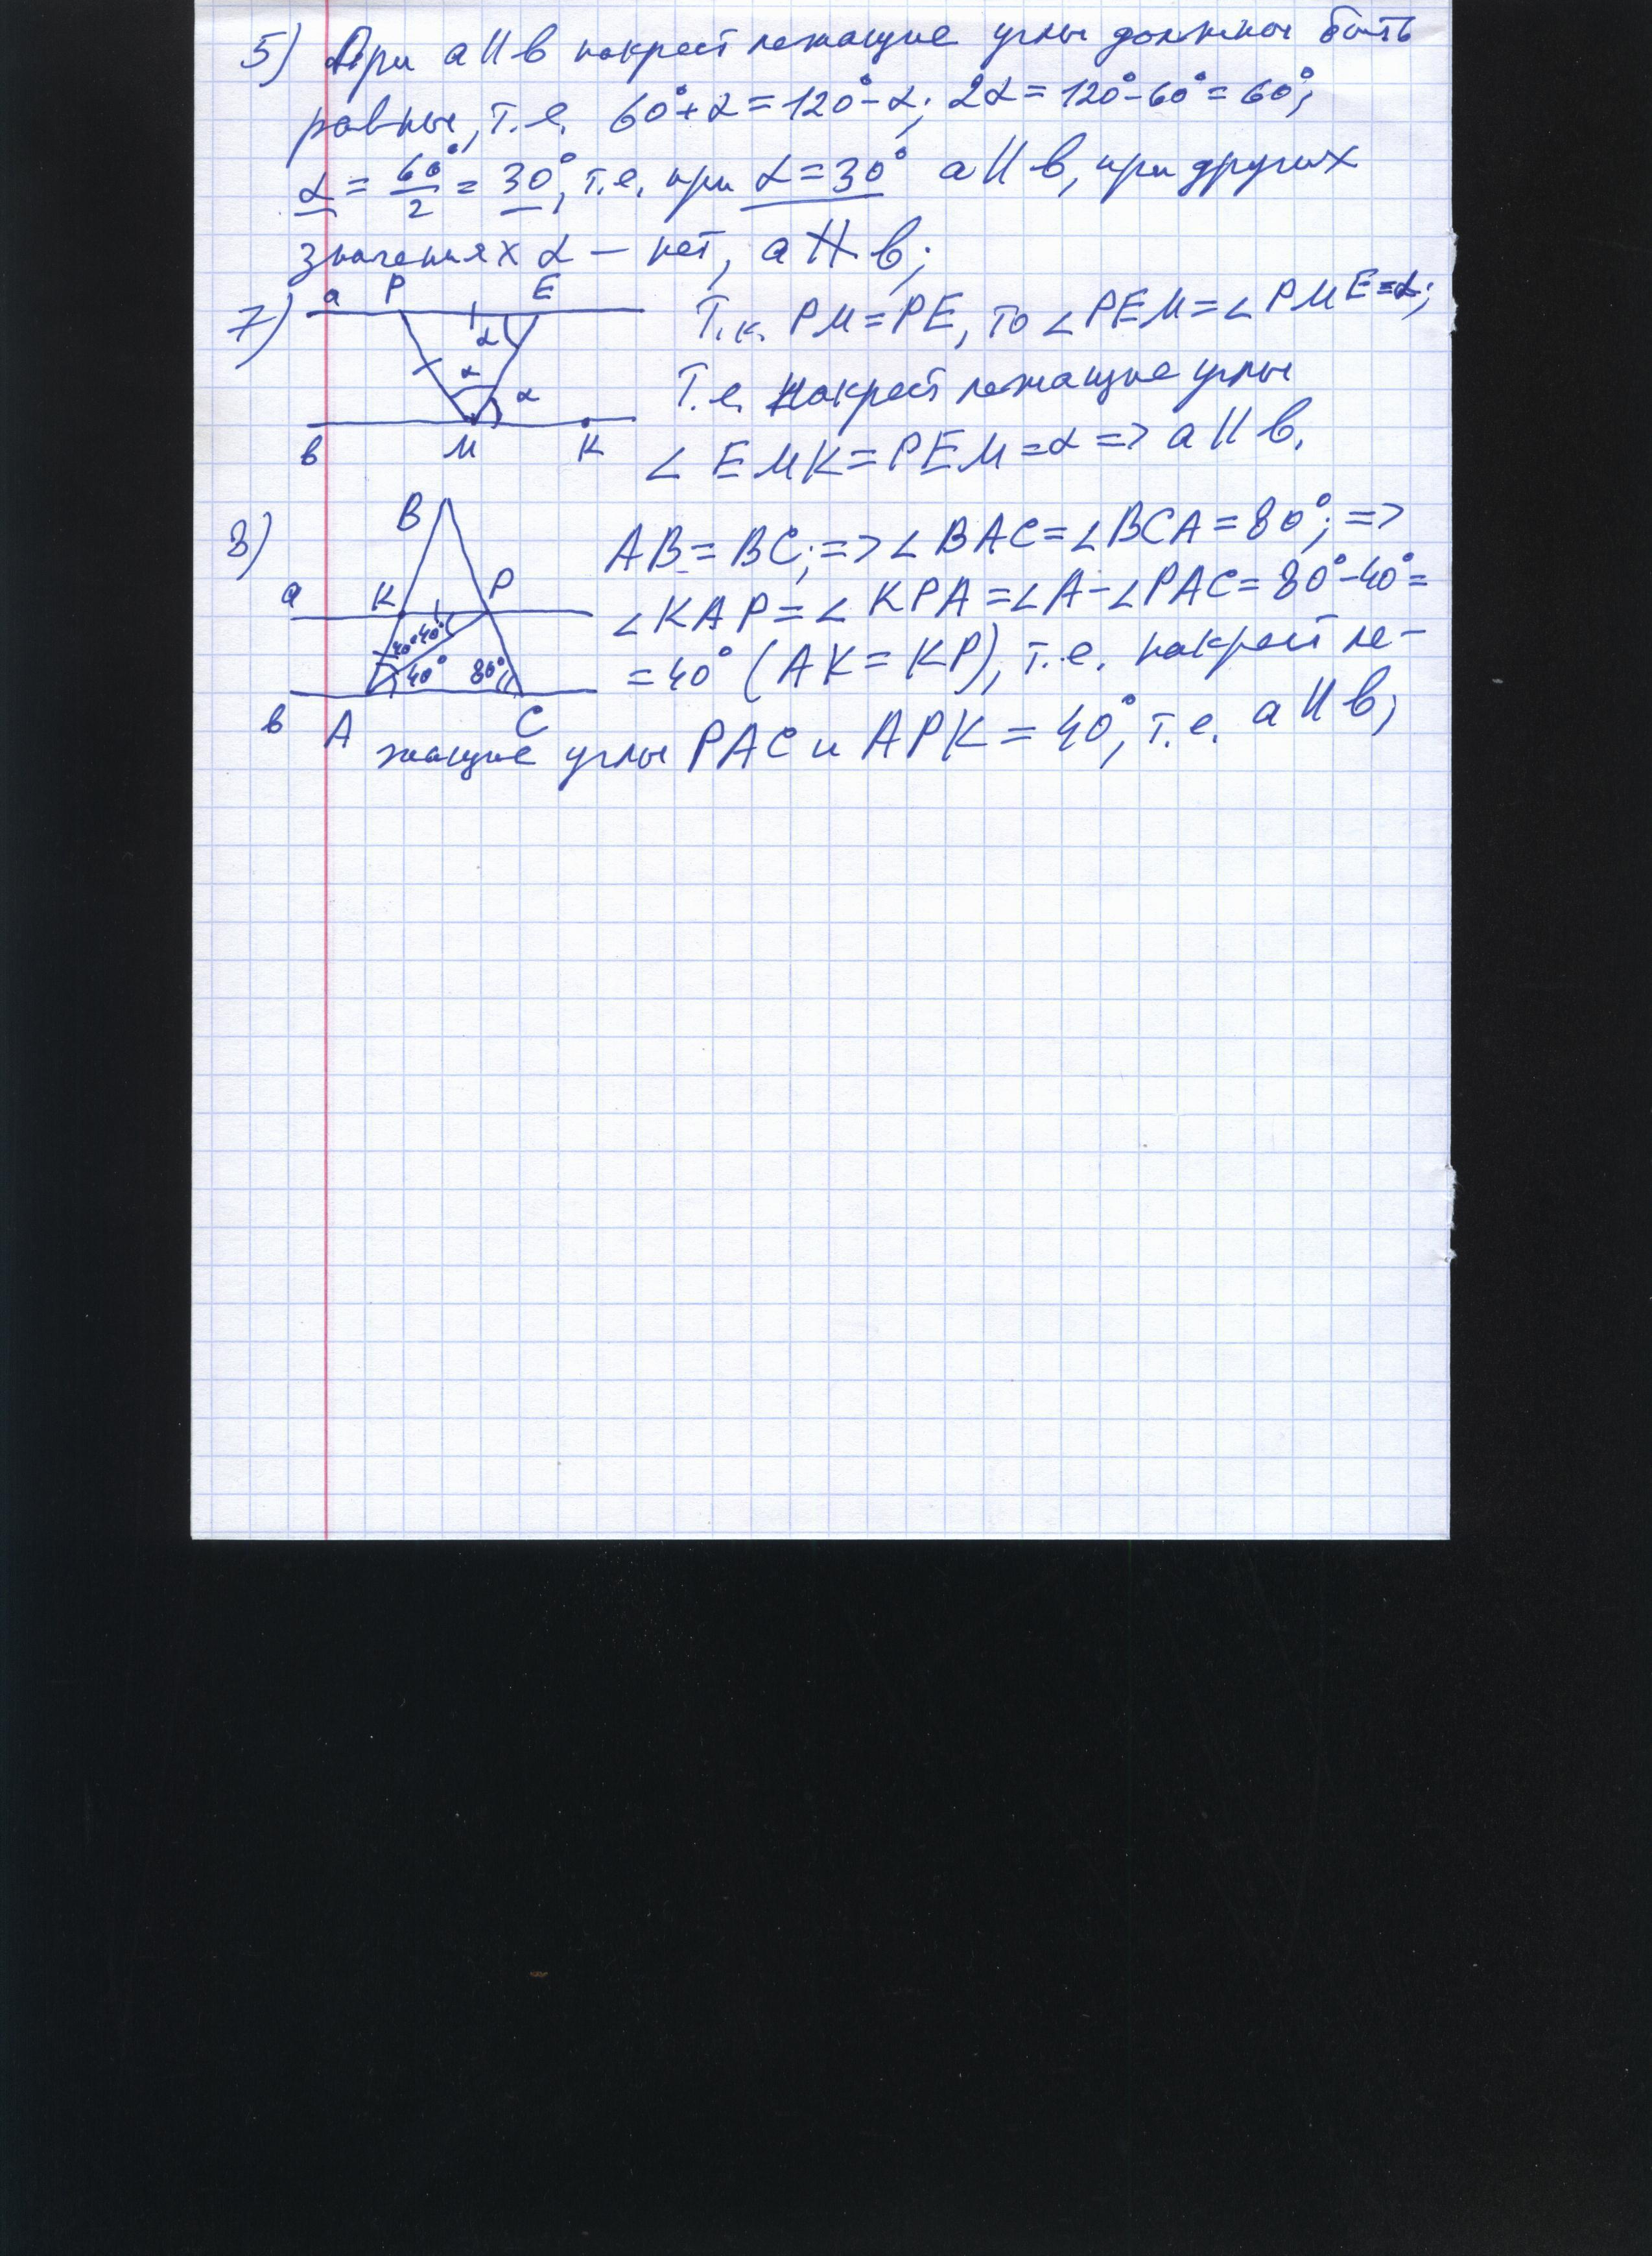 5) При a || b накрест лежащие углы должны быть
равны, т.е. 60°+α=120°-α; 2α=120°-60°=60°;
α = 60°/2 = 30°, т.е. при α=30° a || b, при других
значениях α – нет, a ∦ b;
7) a P E
α α α
b M K
Т.к. PM=PE, то ∠PEM=∠PME=α;
Т.е. накрест лежащие углы
∠ EMK=PEM=α => a || b.
8) B
a K P
40° 40°
40° 80°
b A C
AB=BC; => ∠BAC=∠BCA=80°; =>
∠KAP=∠KPA=∠A-∠PAC=80°-40°=
=40° (AK=KP), т.е. накрест ле-
жащие углы PAC и APK=40°, т.е. a || b;